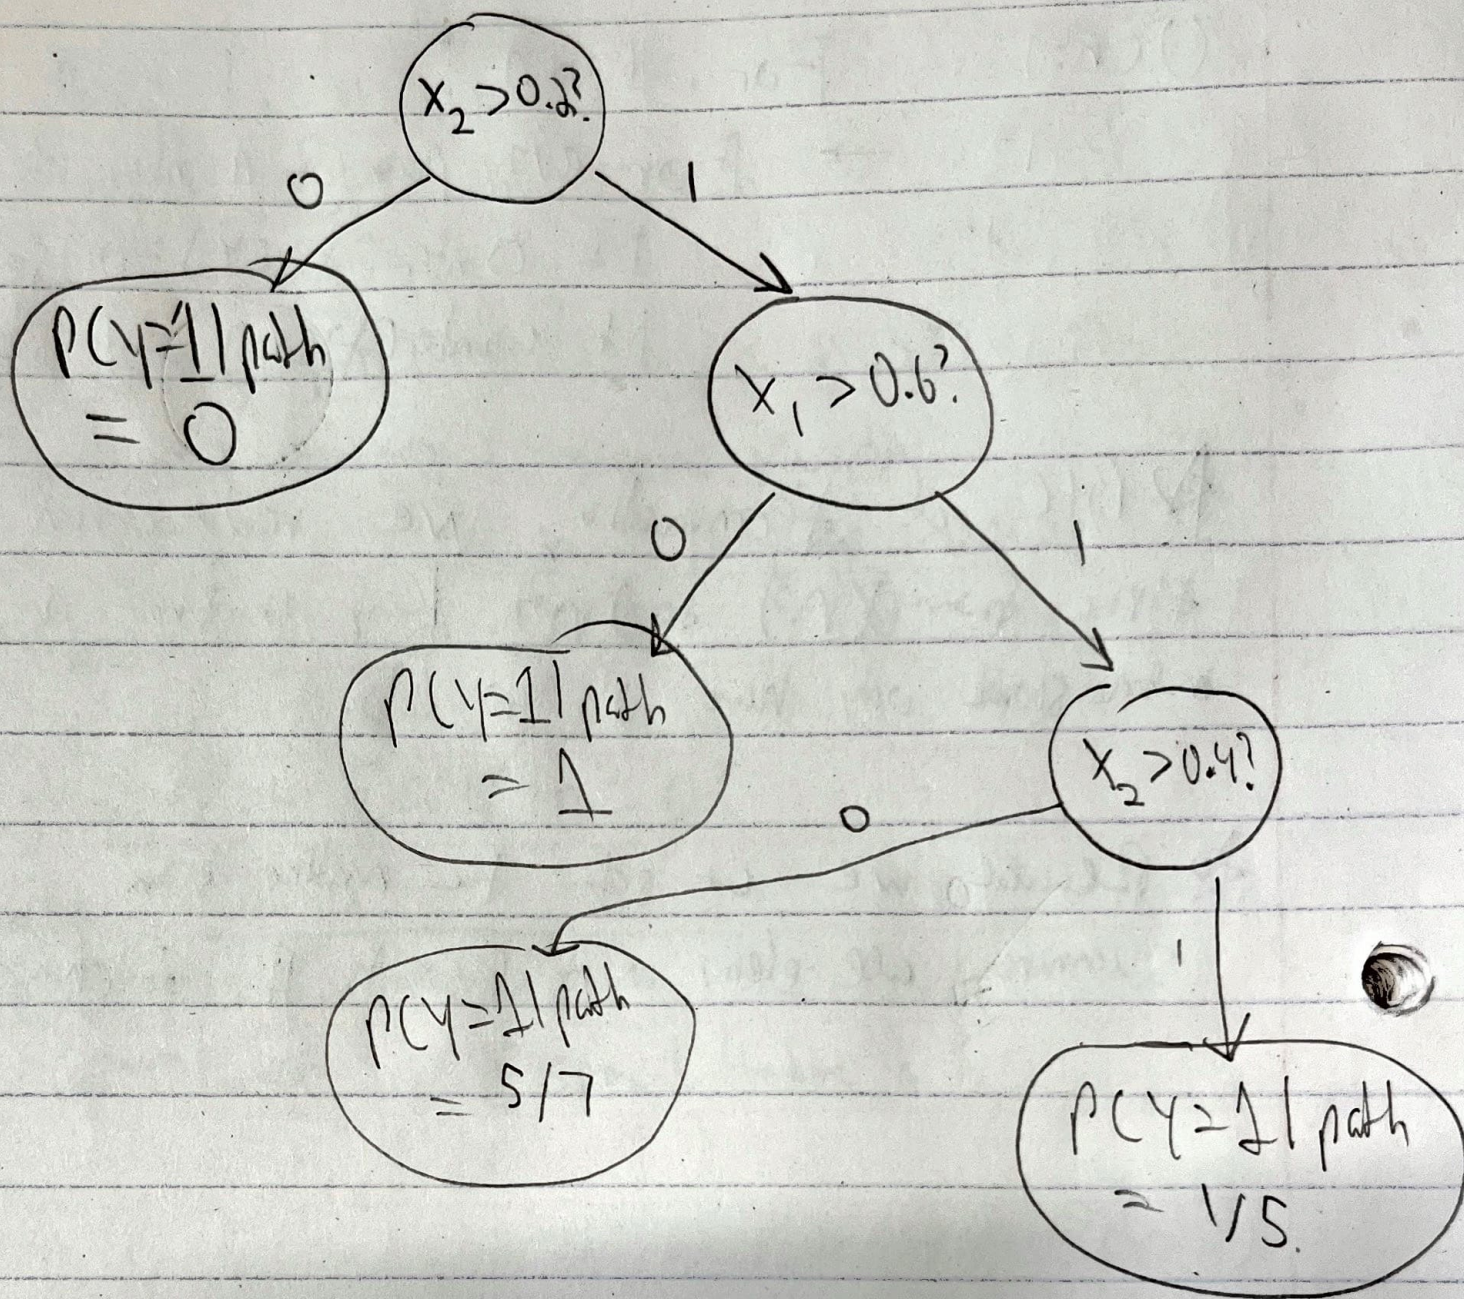 X₂ > 0.2?
0
1
P(Y=1|path
= 0
X₁ > 0.6?
0
1
P(Y=1|path
= 1
X₂ > 0.4?
0
1
P(Y=1|path
= 5/7
P(Y=1|path
= 1/5.